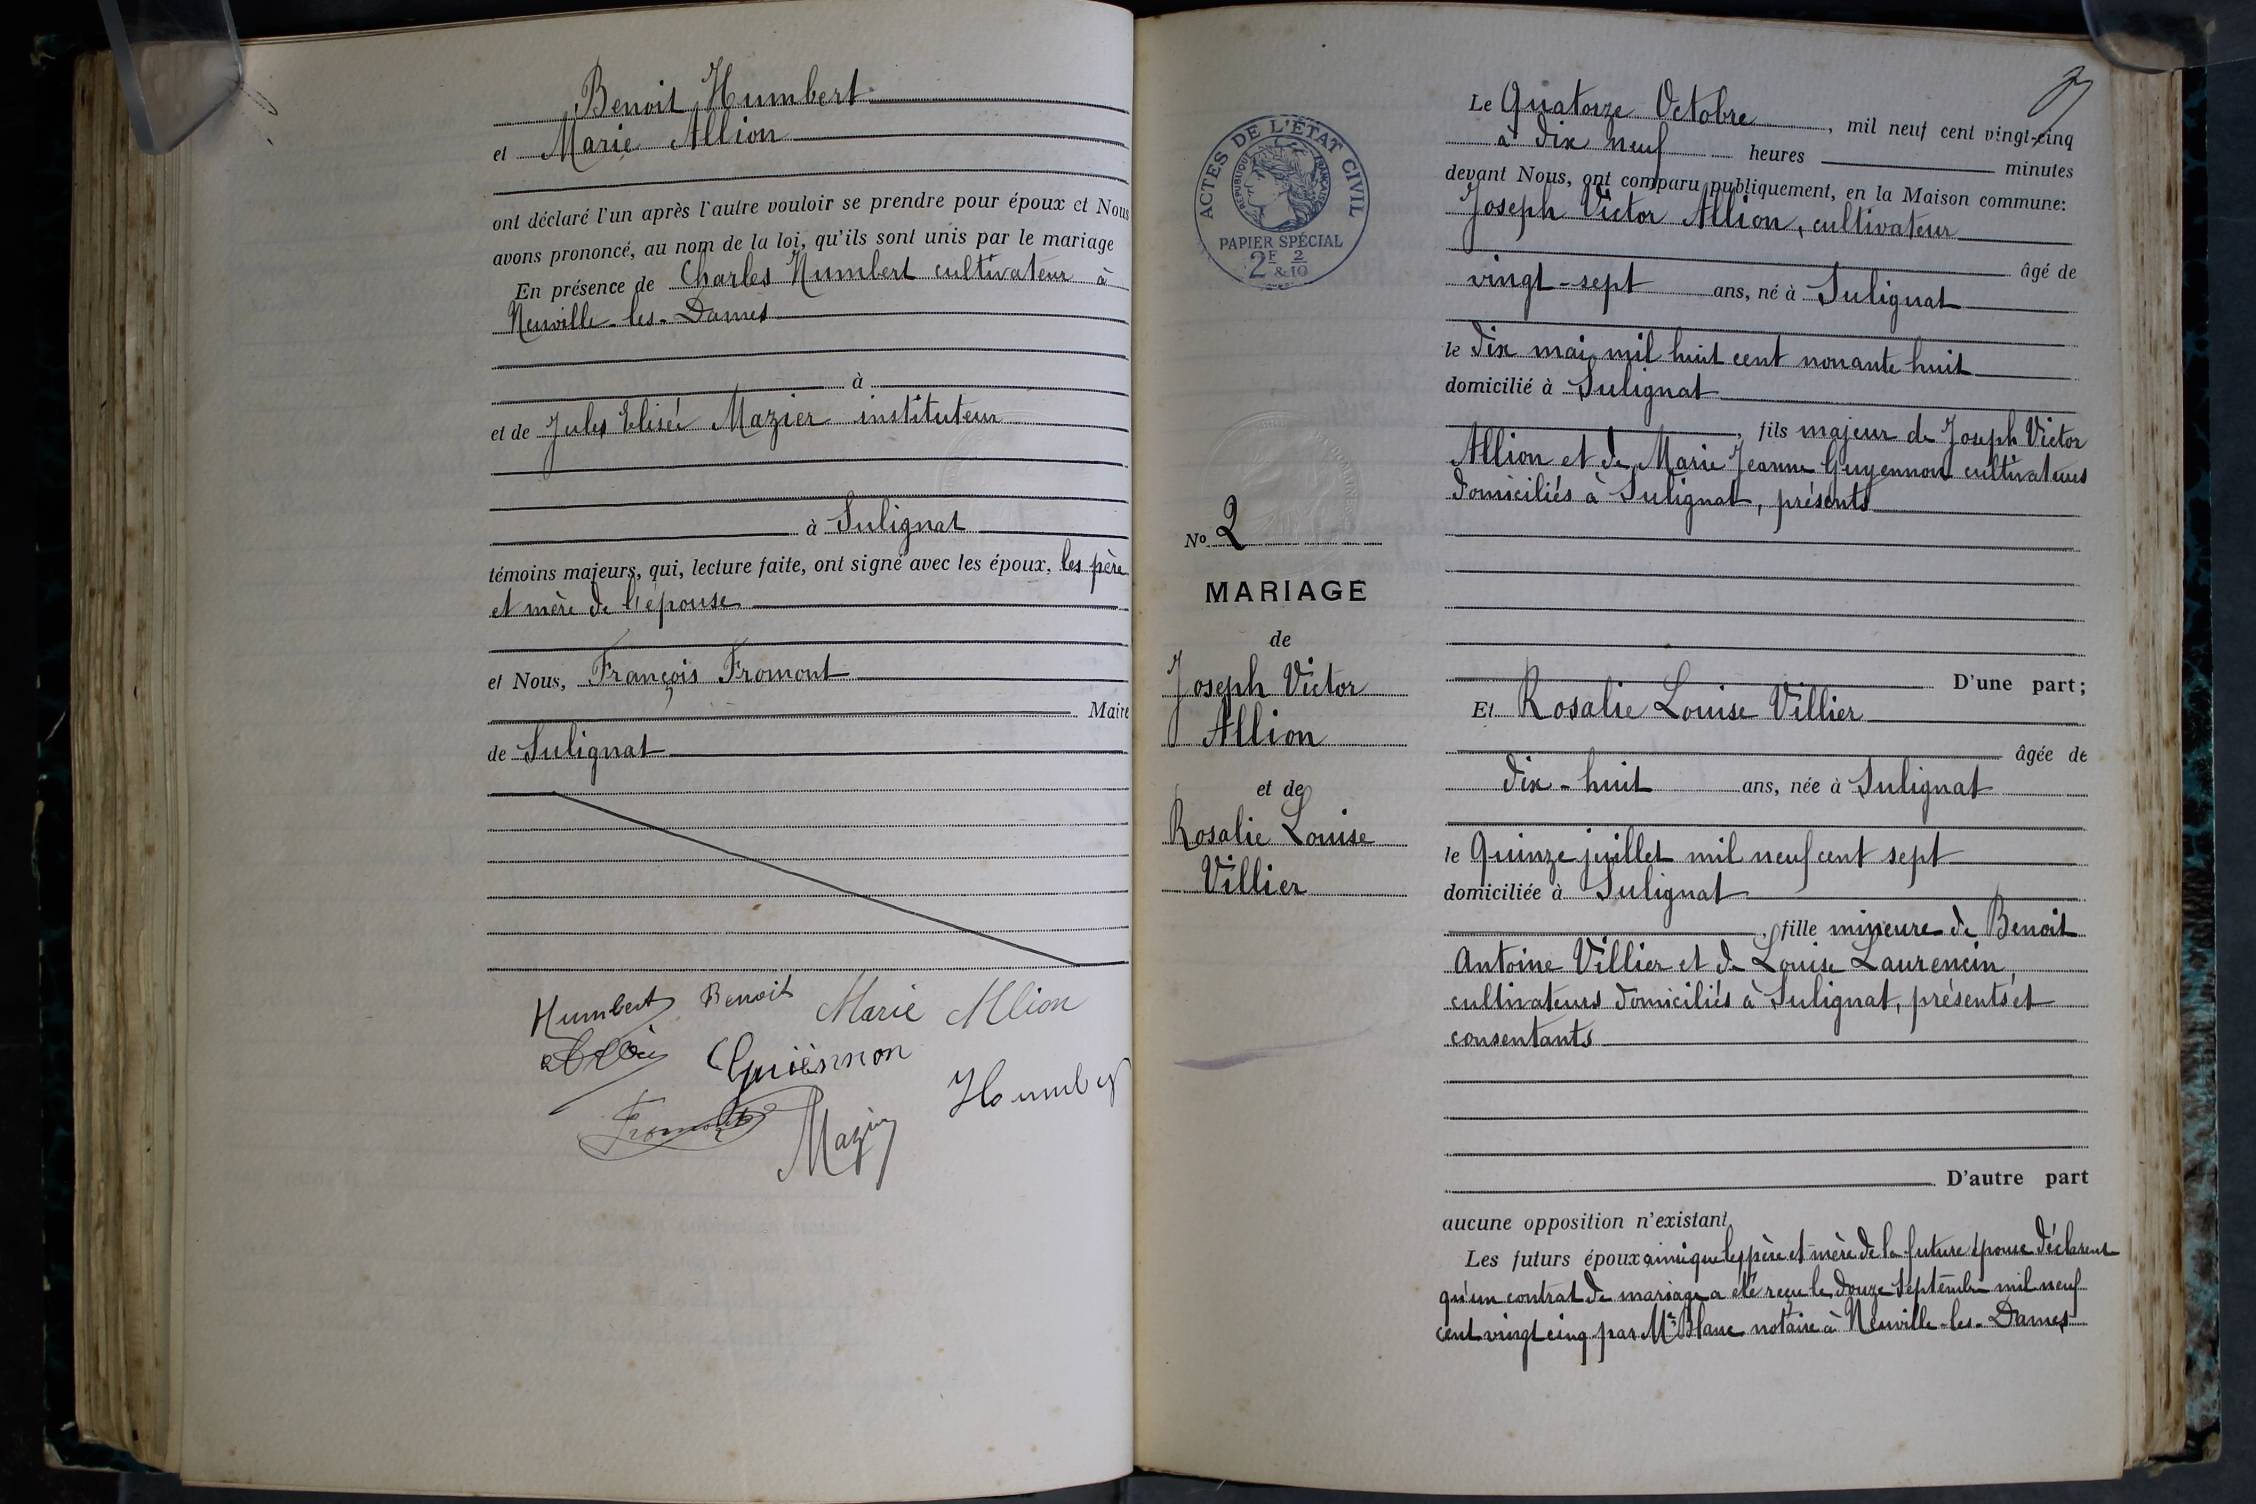 Benoit Humbert
et Marie Allion
ont déclaré l'un après l'autre vouloir se prendre pour époux et Nous
avons prononcé, au nom de la loi, qu'ils sont unis par le mariage
En présence de Charles Humbert cultivateur à
Neuville-les-Dames
à
et de Jules Elisée Mazier instituteur
à Sulignat
témoins majeurs, qui, lecture faite, ont signé avec les époux, les père
et mère de l'épouse
et Nous, François Fromont
Maire
de Sulignat
Humbert Benoit Marie Allion
Guiénnon
Humbert
Fromont
Mazier
ACTES DE L'ÉTAT CIVIL
RÉPUBLIQUE FRANÇAISE
PAPIER SPÉCIAL
2F & 2/10
No 2
MARIAGE
de
Joseph Victor
Allion
et de
Rosalie Louise
Villier
Le Quatorze Octobre, mil neuf cent vingt-cinq
à dix neuf heures minutes
devant Nous, ont comparu publiquement, en la Maison commune:
Joseph Victor Allion, cultivateur
âgé de
vingt-sept ans, né à Sulignat
le dix mai mil huit cent nonante huit
domicilié à Sulignat
, fils majeur de Joseph Victor
Allion et de Marie Jeanne Guyennon cultivateurs
domiciliés à Sulignat, présents
D'une part;
Et Rosalie Louise Villier
âgée de
dix-huit ans, née à Sulignat
le Quinze juillet mil neuf cent sept
domiciliée à Sulignat
, fille mineure de Benoit
Antoine Villier et de Louise Laurencin,
cultivateurs domiciliés à Sulignat, présents et
consentants
D'autre part
aucune opposition n'existant
Les futurs époux ainsi que les père et mère de la future épouse déclarent
qu'un contrat de mariage a été reçu le douze Septembre mil neuf
cent vingt cinq par Me Blanc notaire à Neuville-les-Dames